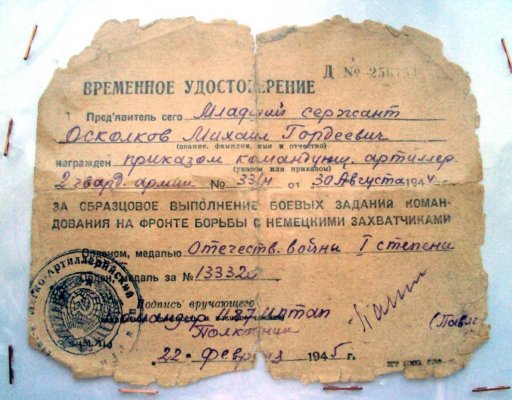 Д № 25675
ВРЕМЕННОЕ УДОСТОВЕРЕНИЕ
Пред'явитель сего Младший сержант
Осколков Михаил Гордеевич
(звание, фамилия, имя и отчество)
награжден приказом командующ. артиллер.
(указом или приказом)
2 гвард. армии № 33/н от 30 Августа 1944
ЗА ОБРАЗЦОВОЕ ВЫПОЛНЕНИЕ БОЕВЫХ ЗАДАНИЙ КОМАН-
ДОВАНИЯ НА ФРОНТЕ БОРЬБЫ С НЕМЕЦКИМИ ЗАХВАТЧИКАМИ
Орденом, медалью Отечеств. войны I степени
Орден, медаль за № 13332
Подпись вручающего
командир 1187 иптап
Полковник
22 февраля 1945 г.